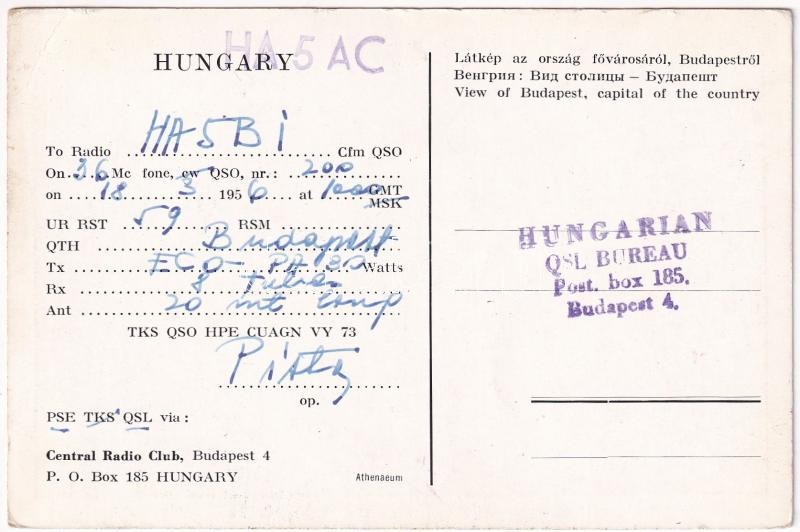 HA5AC
HUNGARY
To Radio HA5BI Cfm QSO
On 36 Mc fone, cw QSO, nr.: 200
on 18 5 1956 at 1000 GMT
MSK
UR RST 59 RSM
QTH Budapest
Tx ECO-PA 30 Watts
Rx 8 tubes
Ant 20 mt
TKS QSO HPE CUAGN VY 73
Pista
op.
PSE TKS QSL via :
Central Radio Club, Budapest 4
P. O. Box 185 HUNGARY
Athenaeum
Látkép az ország fővárosáról, Budapestről
Венгрия : Вид столицы – Будапешт
View of Budapest, capital of the country
HUNGARIAN
QSL BUREAU
Post. box 185.
Budapest 4.